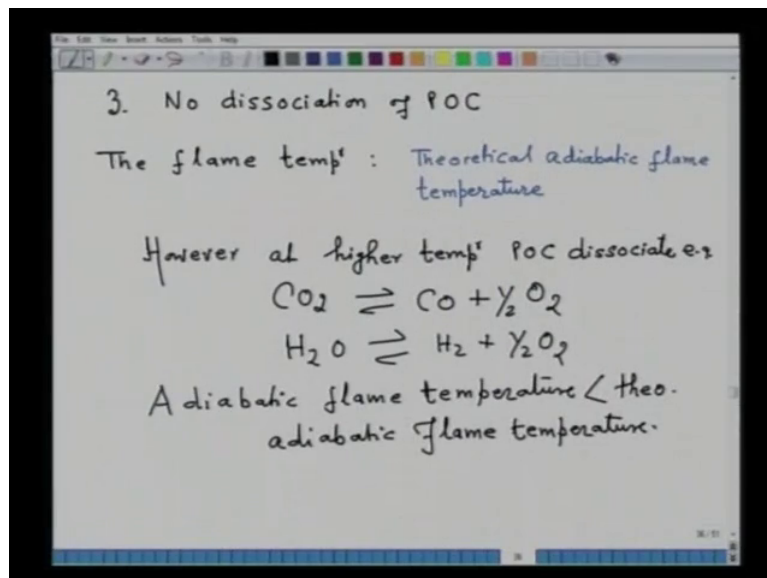 File Edit View Insert Actions Tools Help
3. No dissociation of POC
The flame tempʳ : Theoretical adiabatic flame
temperature
However at higher tempʳ POC dissociate e.g
CO₂ ⇌ CO + ½ O₂
H₂O ⇌ H₂ + ½ O₂
Adiabatic flame temperature < theo.
adiabatic flame temperature.